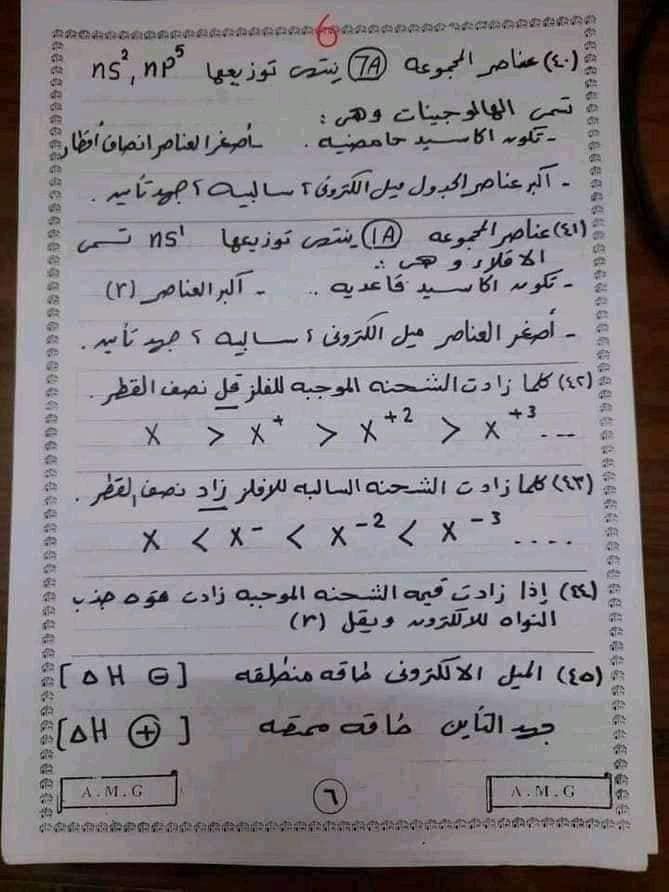 6
(٤٠) عناصر المجموعه (7A) ينتهى توزيعها ns², np⁵
تسمى الهالوجينات وهى :
- تكون اكاسيد حامضيه . - أصغر العناصر انصاف أقطار
- أكبر عناصر الجدول ميل الكترونى ، سالبيه ، جهد تأين .
(٤١) عناصر المجموعه (1A) ينتهى توزيعها ns¹ تسمى
الاقلاء و هى :
- تكون اكاسيد قاعديه .. - أكبر العناصر (r)
- أصغر العناصر ميل الكترونى ، سالبيه ، جهد تأين .
(٤٢) كلما زادت الشحنه الموجبه للفلز قل نصف القطر .
X > X⁺ > X⁺² > X⁺³ ...
(٤٣) كلما زادت الشحنه السالبه للافلز زاد نصف القطر .
X < X⁻ < X⁻² < X⁻³ ....
(٤٤) إذا زادت قيمه الشحنه الموجبه زادت قوه جذب
النواه للالكترون ويقل (r)
(٤٥) الميل الالكترونى طاقه منطلقه [ΔH ⊖]
جهد التأين طاقه ممتصه [ΔH ⊕]
A.M.G ٦ A.M.G